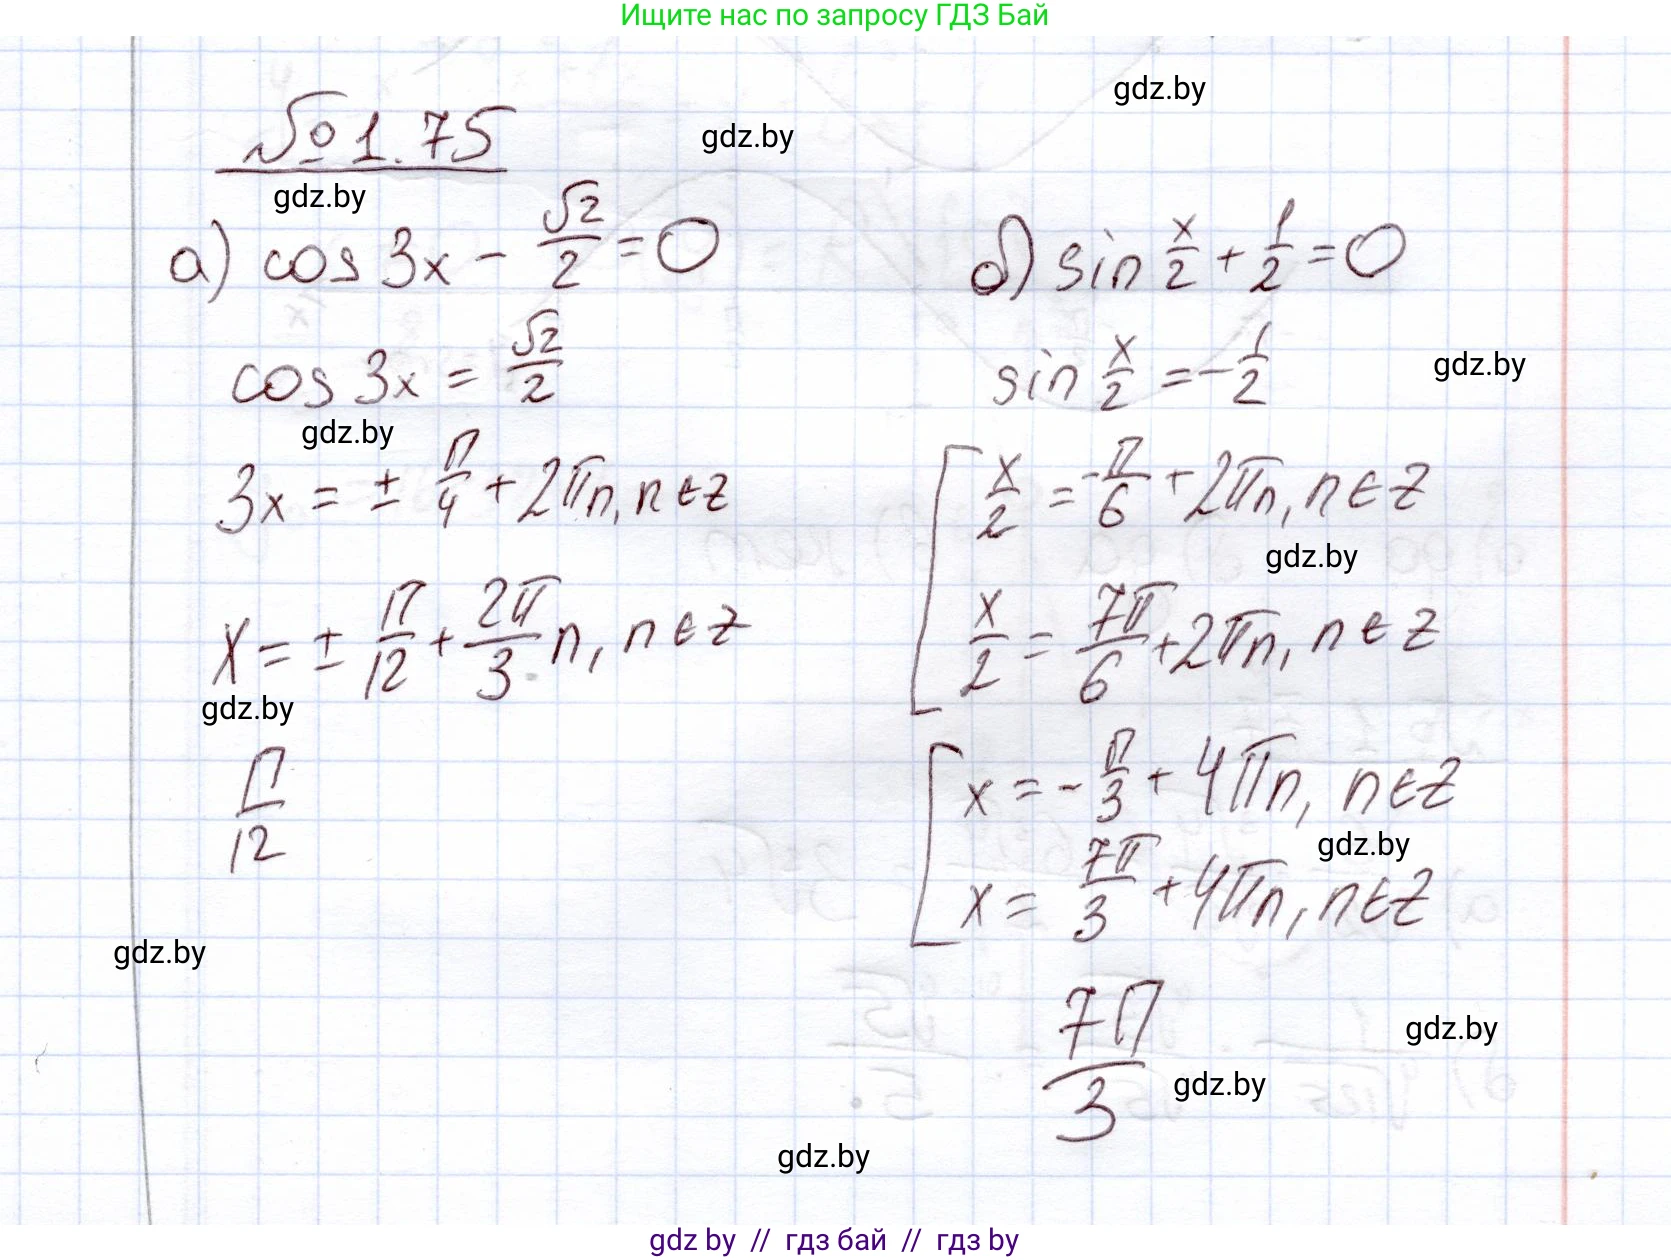 Ищите нас по запросу ГДЗ Бай
gdz.by
№ 1.75
gdz.by
gdz.by
а) cos 3x - √2/2 = 0
cos 3x = √2/2
gdz.by
3x = ± π/4 + 2πn, n ∈ Z
x = ± π/12 + 2π/3 n, n ∈ Z
gdz.by
π/12
gdz.by
б) sin x/2 + 1/2 = 0
sin x/2 = - 1/2
gdz.by
[ x/2 = -π/6 + 2πn, n ∈ Z
gdz.by
x/2 = 7π/6 + 2πn, n ∈ Z
[ x = - π/3 + 4πn, n ∈ Z
gdz.by
x = 7π/3 + 4πn, n ∈ Z
7π/3
gdz.by
gdz.by
gdz.by
gdz by // гдз бай // гдз by